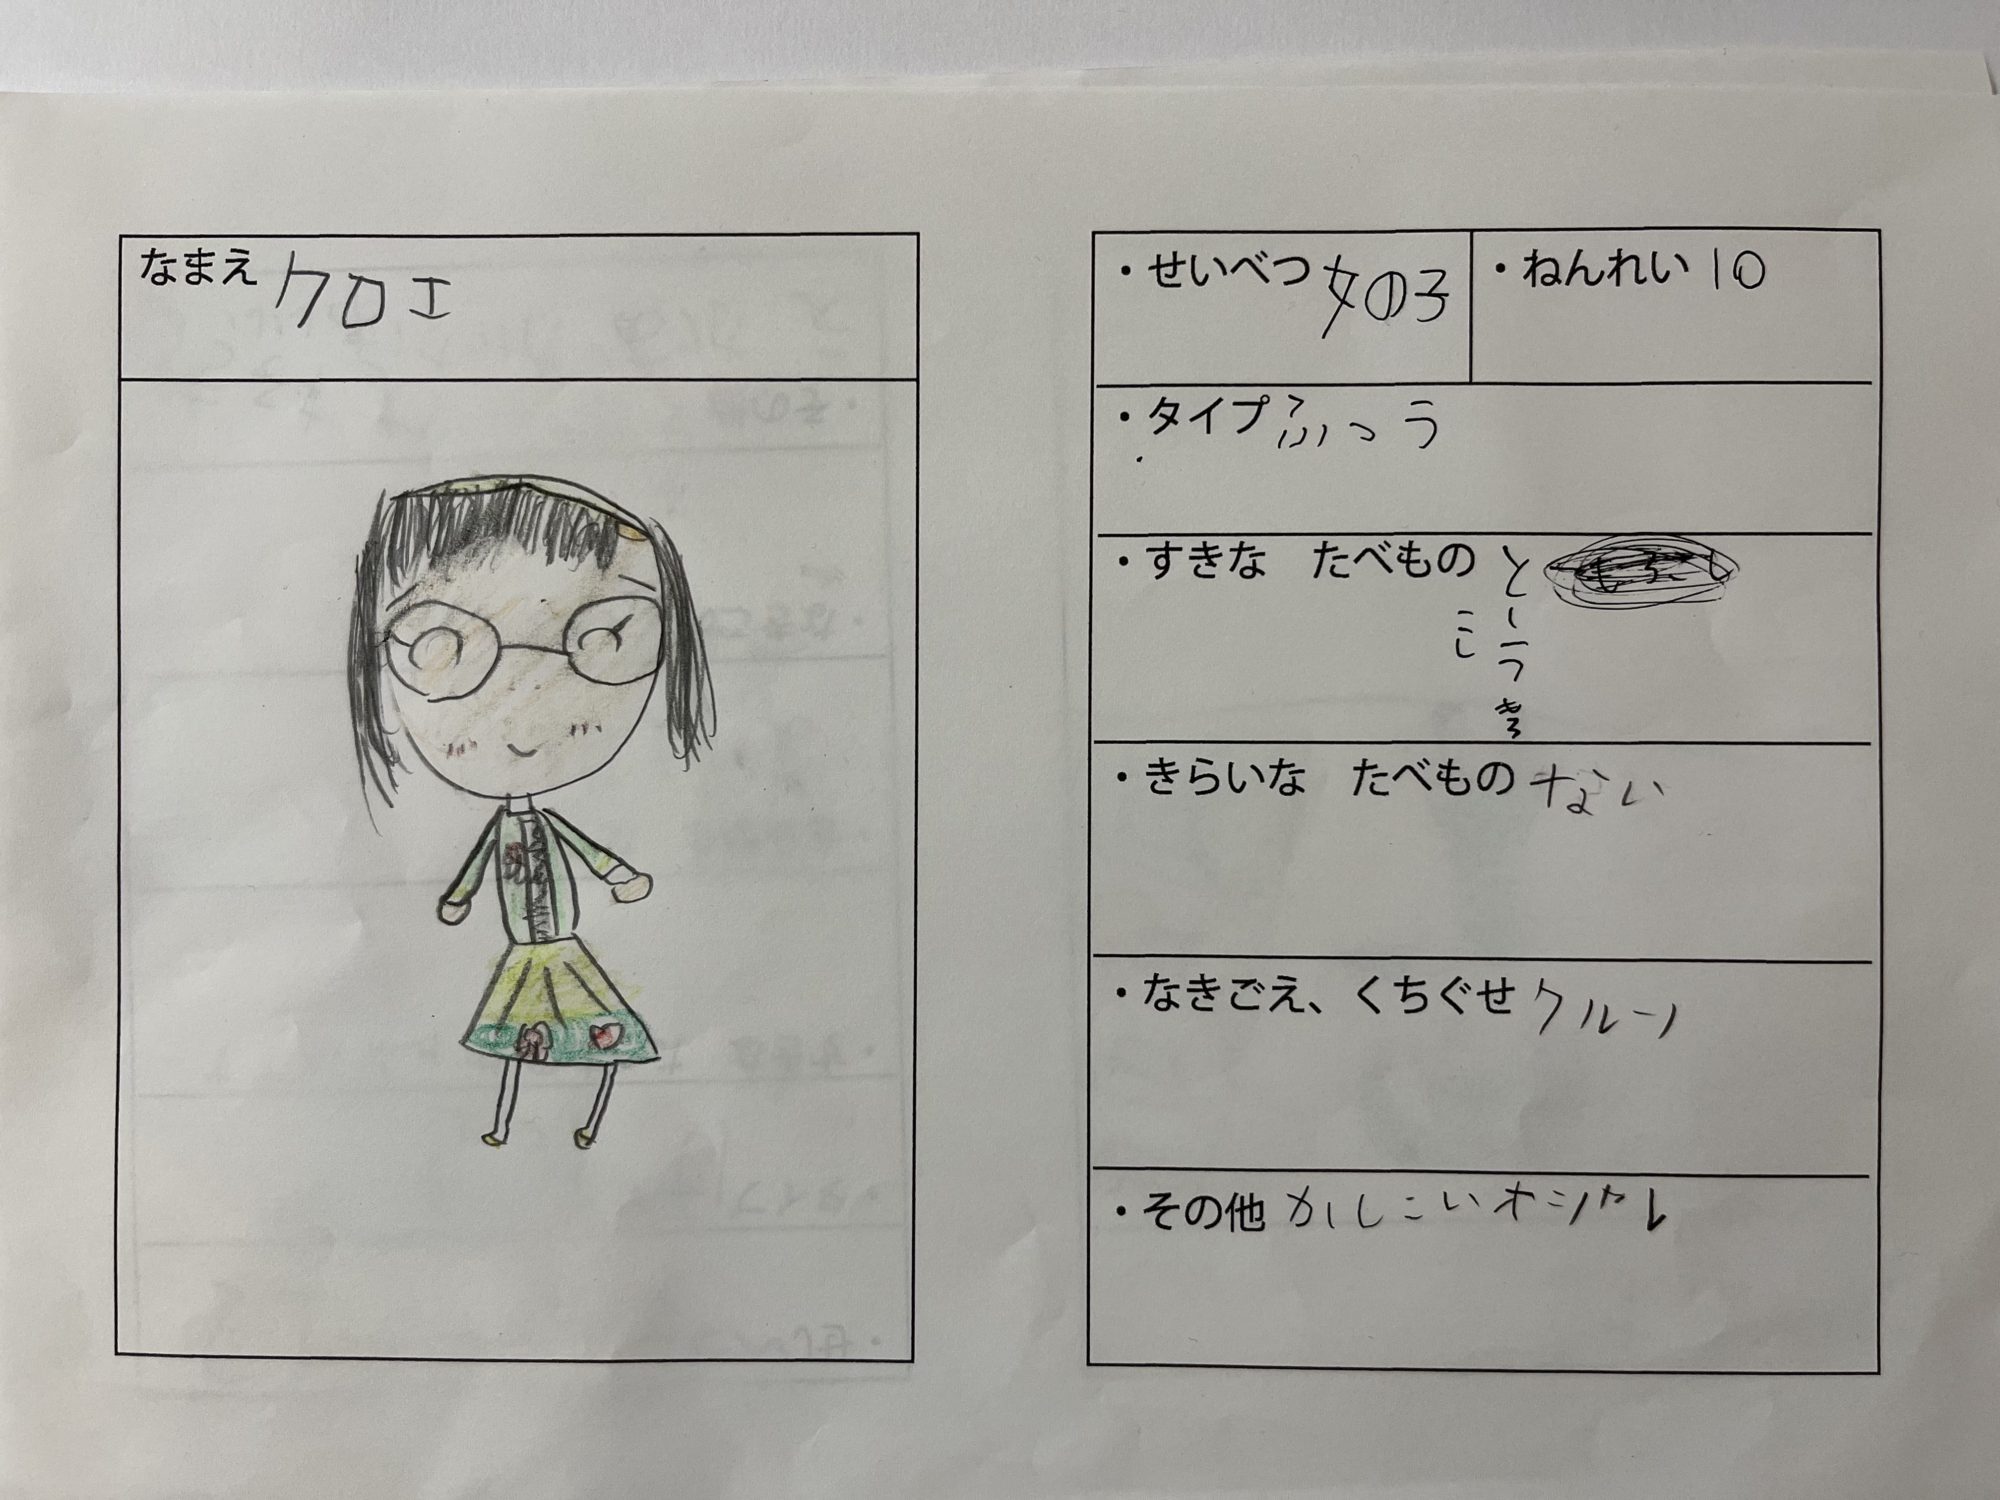 なまえ クロエ
・せいべつ 女の子
・ねんれい 10
・タイプ ふつう
・すきな たべもの
・きらいな たべもの ない
・なきごえ、くちぐせ クルーン
・その他 かしこいオシャレ